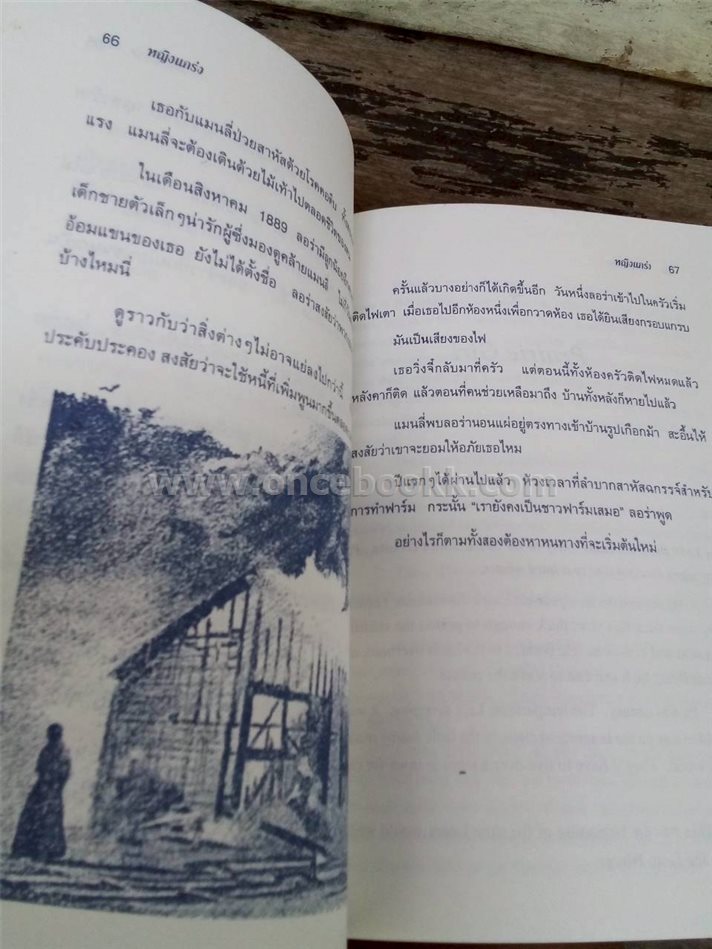 66 หญิงแกร่ง
เธอกับแมนลี่ป่วยสาหัสด้วยโรคคอตีบ
แรง แมนลี่จะต้องเดินด้วยไม้เท้าไปตลอดชีวิตของ
ในเดือนสิงหาคม 1889 ลอร่ามีลูกน้อย
เด็กชายตัวเล็กๆน่ารักผู้ซึ่งมองดูคล้ายแมนลี่
อ้อมแขนของเธอ ยังไม่ได้ตั้งชื่อ ลอร่าสงสัยว่า
บ้างไหมนี่
ดูราวกับว่าสิ่งต่างๆไม่อาจแย่ลงไปกว่านี้
ประคับประคอง สงสัยว่าจะใช้หนี้ที่เพิ่มพูนมากขึ้น
www.oncebookk.com
หญิงแกร่ง 67
ครั้นแล้วบางอย่างก็ได้เกิดขึ้นอีก วันหนึ่งลอร่าเข้าไปในครัวเริ่ม
ติดไฟเตา เมื่อเธอไปอีกห้องหนึ่งเพื่อกวาดห้อง เธอได้ยินเสียงกรอบแกรบ
มันเป็นเสียงของไฟ
เธอวิ่งจี๋กลับมาที่ครัว แต่ตอนนี้ทั้งห้องครัวติดไฟหมดแล้ว
หลังคาก็ติด แล้วตอนที่คนช่วยเหลือมาถึง บ้านทั้งหลังก็หายไปแล้ว
แมนลี่พบลอร่านอนแผ่อยู่ตรงทางเข้าบ้านรูปเกือกม้า สะอื้นไห้
สงสัยว่าเขาจะยอมให้อภัยเธอไหม
ปีแรกๆได้ผ่านไปแล้ว ห้วงเวลาที่ลำบากสาหัสฉกรรจ์สำหรับ
การทำฟาร์ม กระนั้น "เรายังคงเป็นชาวฟาร์มเสมอ" ลอร่าพูด
อย่างไรก็ตามทั้งสองต้องหาหนทางที่จะเริ่มต้นใหม่